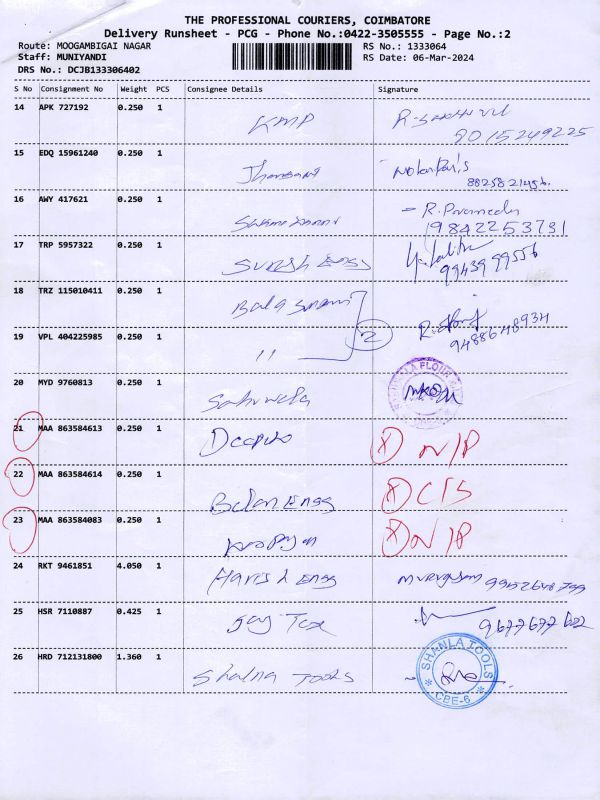 THE PROFESSIONAL COURIERS, COIMBATORE
Delivery Runsheet - PCG - Phone No.:0422-3505555 - Page No.:2
Route: MOOGAMBIGAI NAGAR RS No.: 1333064
Staff: MUNIYANDI RS Date: 06-Mar-2024
DRS No.: DCJB133306402
S No Consignment No Weight PCS Consignee Details Signature
14 APK 727192 0.250 1 KMP
8015249225
15 EDQ 15961240 0.250 1
16 AWY 417621 0.250 1
19842253731
17 TRP 5957322 0.250 1 SURESH ENGG
9943999556
18 TRZ 115010411 0.250 1 Bala
2
9488648934
19 VPL 404225985 0.250 1 "
20 MYD 9760813 0.250 1
FLOUR
21 MAA 863584613 0.250 1 Deepika X N/P
22 MAA 863584614 0.250 1 Engg X C/S
23 MAA 863584083 0.250 1 X N/P
24 RKT 9461851 4.050 1 Harish Engg Murugesan
25 HSR 7110887 0.425 1 Jay Tex
26 HRD 712131800 1.360 1 Shalna Tools
SHANLA TOOLS
CBE-6